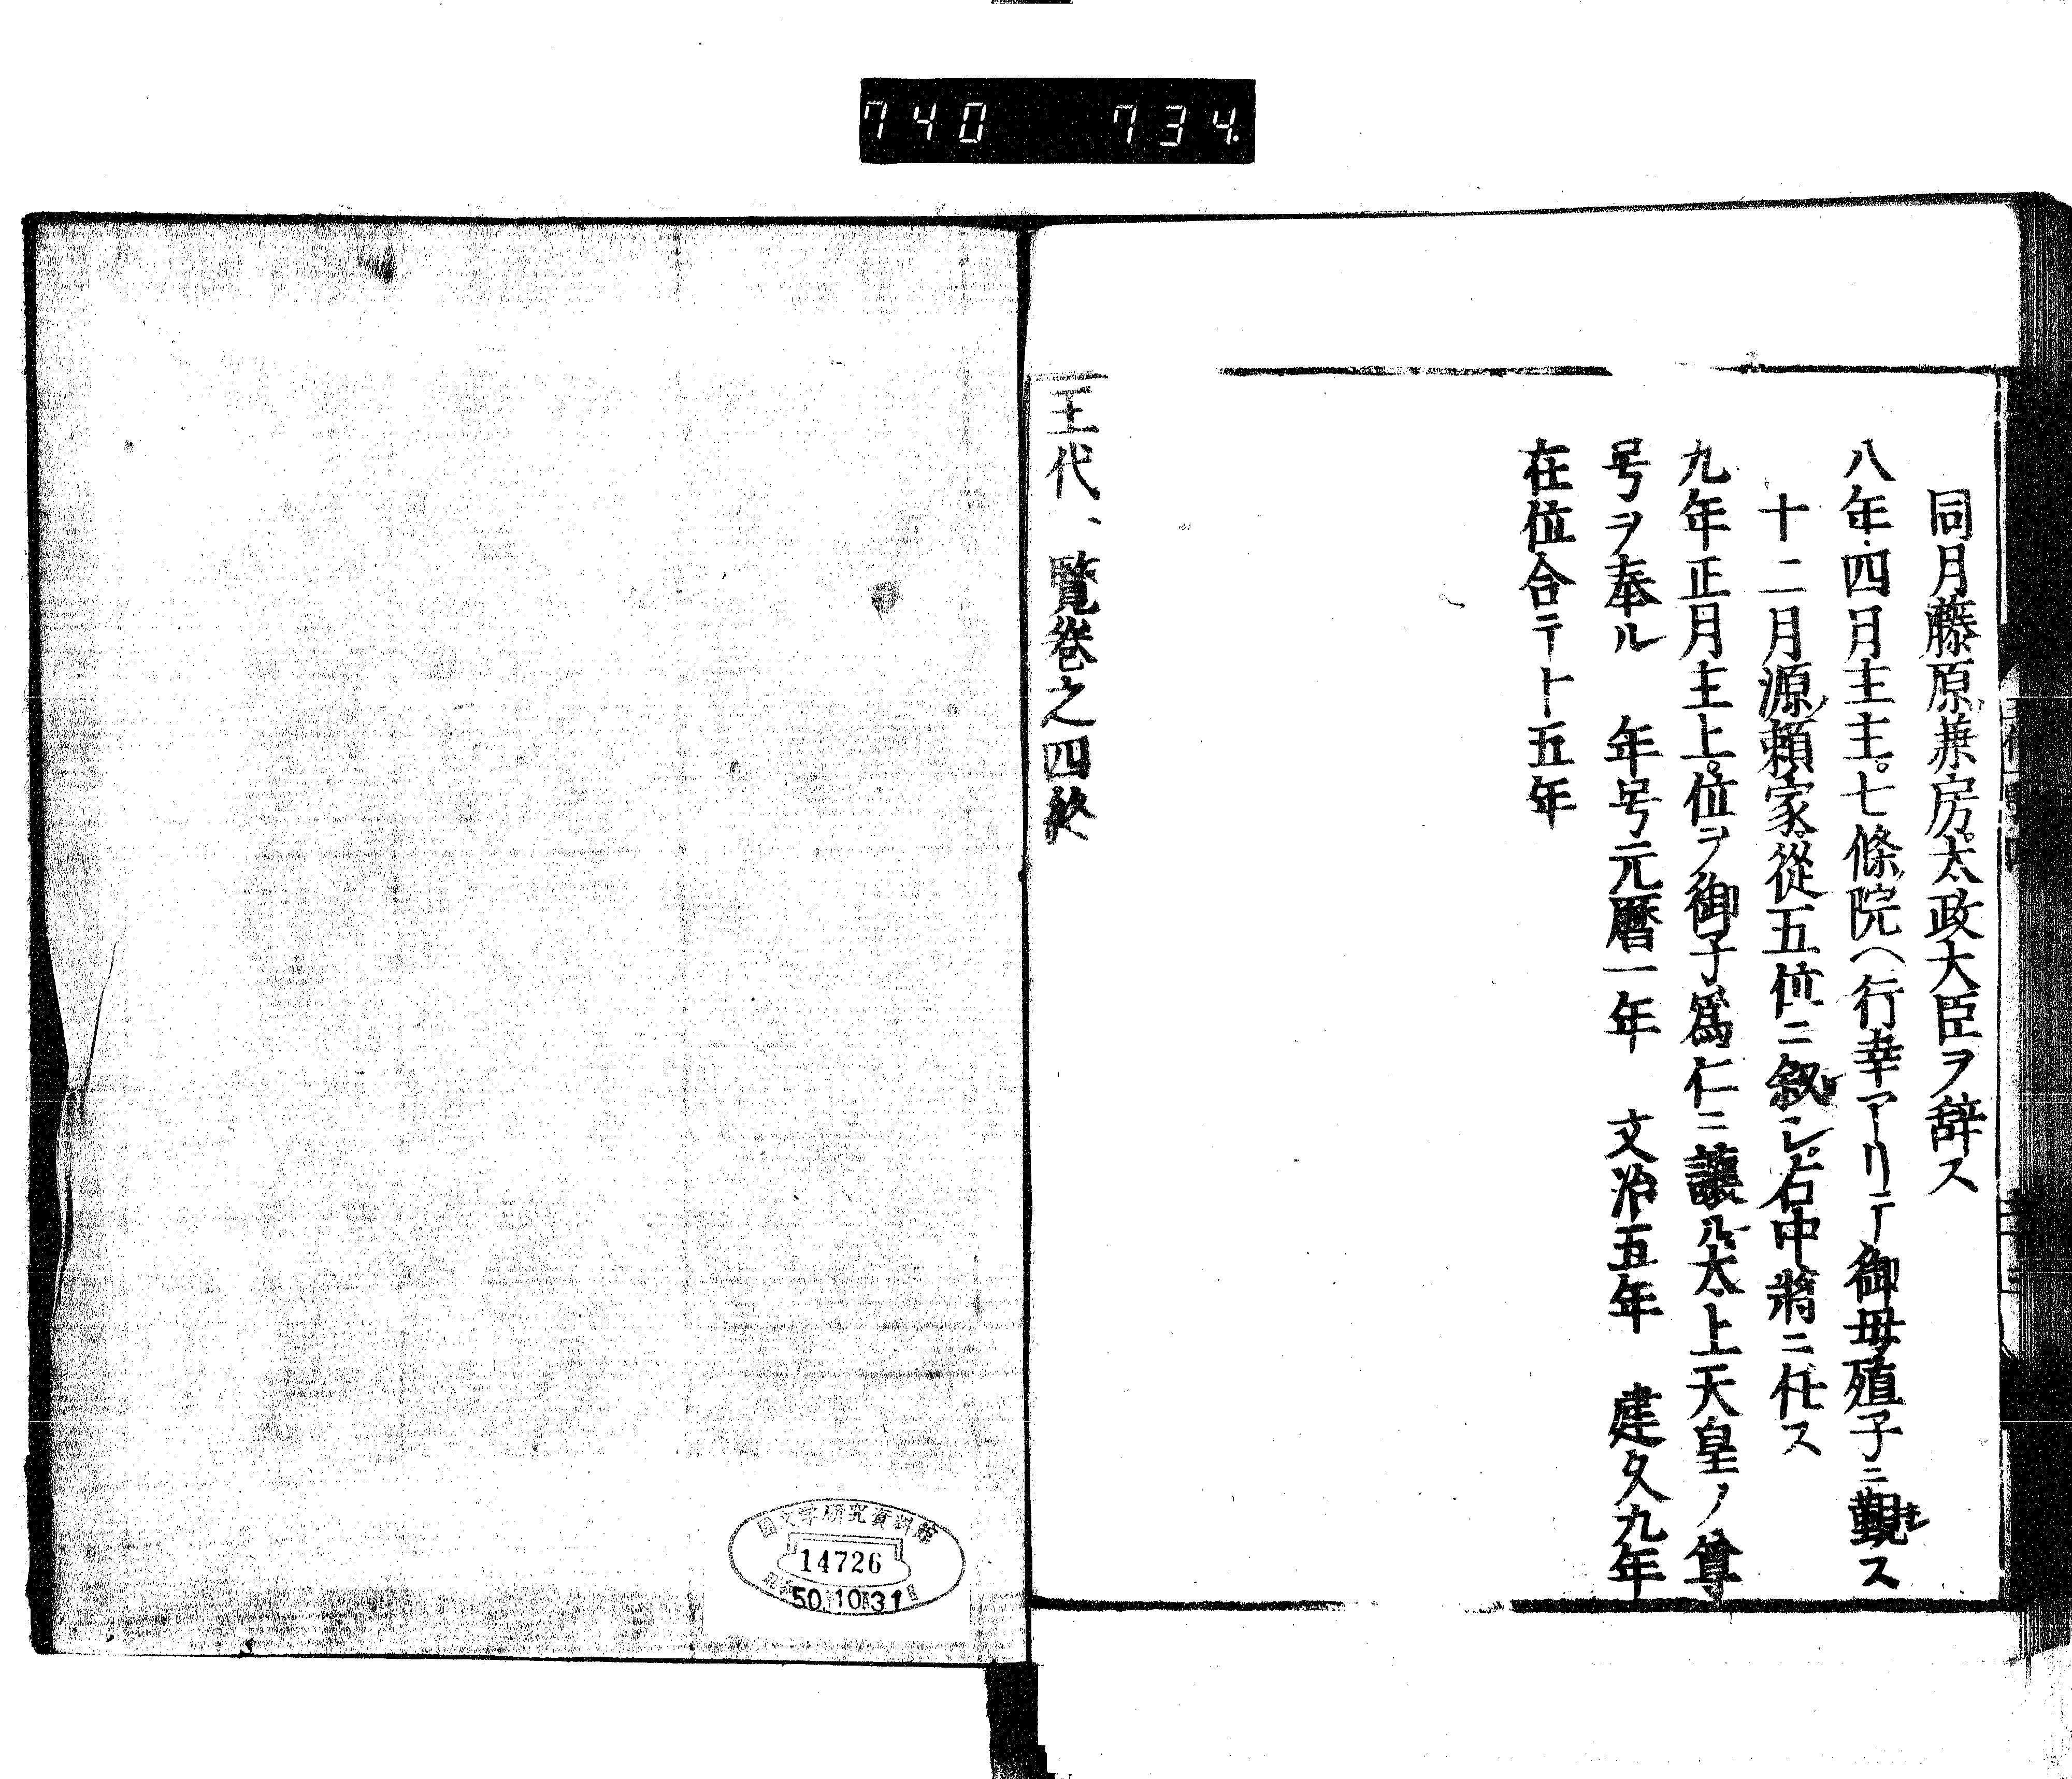 740 734
同月藤原兼房太政大臣ヲ辞ス
八年四月主上七條院ヘ行幸アリテ御母殖子ニ覲ス
十二月源頼家從五位ニ叙シ右中將ニ任ス
九年正月主上位ヲ御子爲仁ニ讓ル太上天皇ノ尊
号ヲ奉ル 年号元曆一年 文治五年 建久九年
在位合テ十五年
王代一覽巻之四終
国文学研究資料館
14726
50.10.31